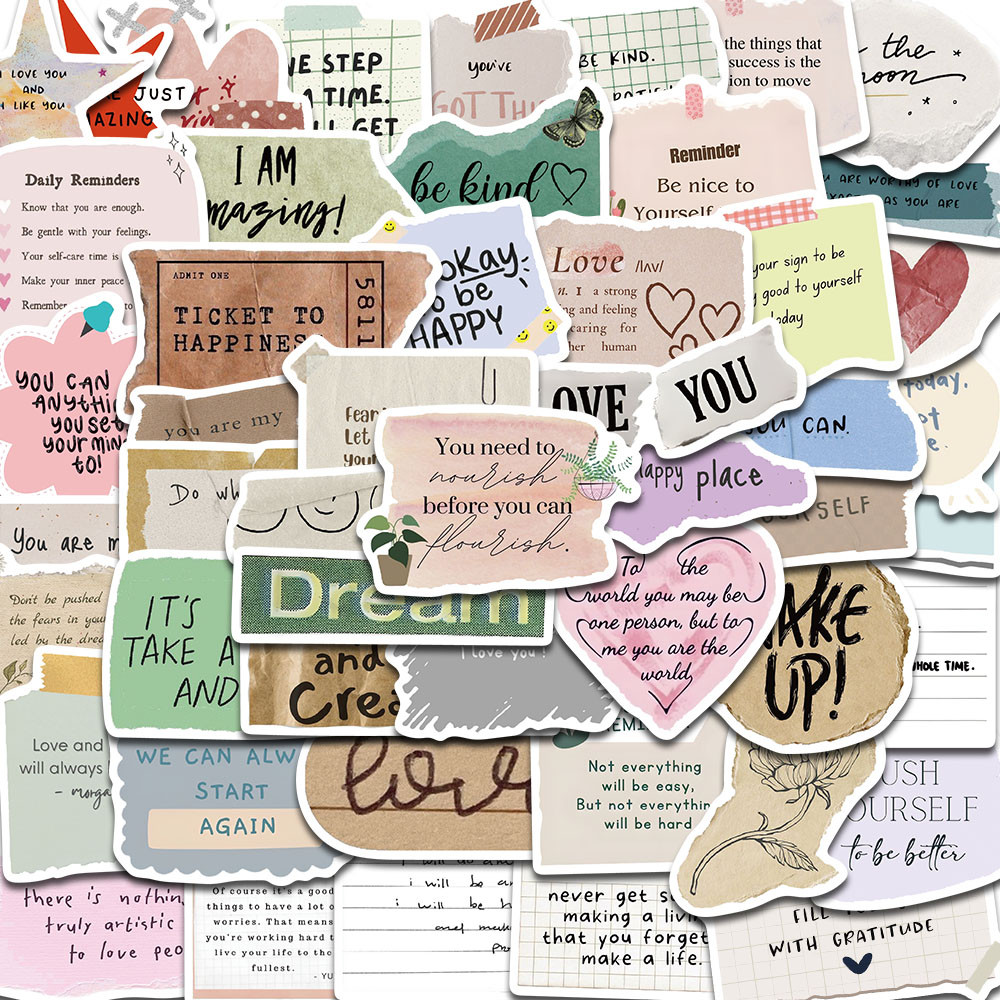 I LOVE YOU
AND
I LIKE YOU
JUST
AZING
E STEP
TIME.
GET
you've
GOT TH
BE KIND.
the things that
success is the
ion to move
the
moon
Daily Reminders
Know that you are enough.
Be gentle with your feelings.
Your self-care time is
Make your inner peace
Remember
to
I AM
mazing!
be kind
Reminder
Be nice to
Yourself
ARE WORTHY OF LOVE
AS YOU ARE
ADMIT ONE
TICKET TO
HAPPINES
5811
OKAY
o be
HAPPY
Love /lʌv/
n. 1 a strong
ing and feeling
caring for
her human
your sign to be
good to yourself
oday
YOU CAN
ANYTHI
YOU SET
YOUR MIN
TO!
you are my
Fear
Let
you
OVE
YOU
OU CAN.
today,
ot
e.
Do wh
You need to
nourish
before you can
flourish.
appy place
OURSELF
You are m
Don't be pushed
the fears in your
led by the drea
IT'S
TAKE A
AND
Dream
and
Crea
I love you!
To the
world you may be
one person, but to
me you are the
world
AKE
UP!
WHOLE TIME.
Love and
will always
- morga
WE CAN ALW
START
AGAIN
love
Not everything
will be easy,
But not everythin
will be hard
USH
OURSELF
to be better
there is nothin
truly artistic
to love peo
Of course it's a good
things to have a lot o
worries. That means
you're working hard t
live your life to the
fullest.
- YU
i will do an
i will be a
i will be h
and mak
pr
never get s
making a livi
that you forget
make a life.
FILL
WITH GRATITUDE